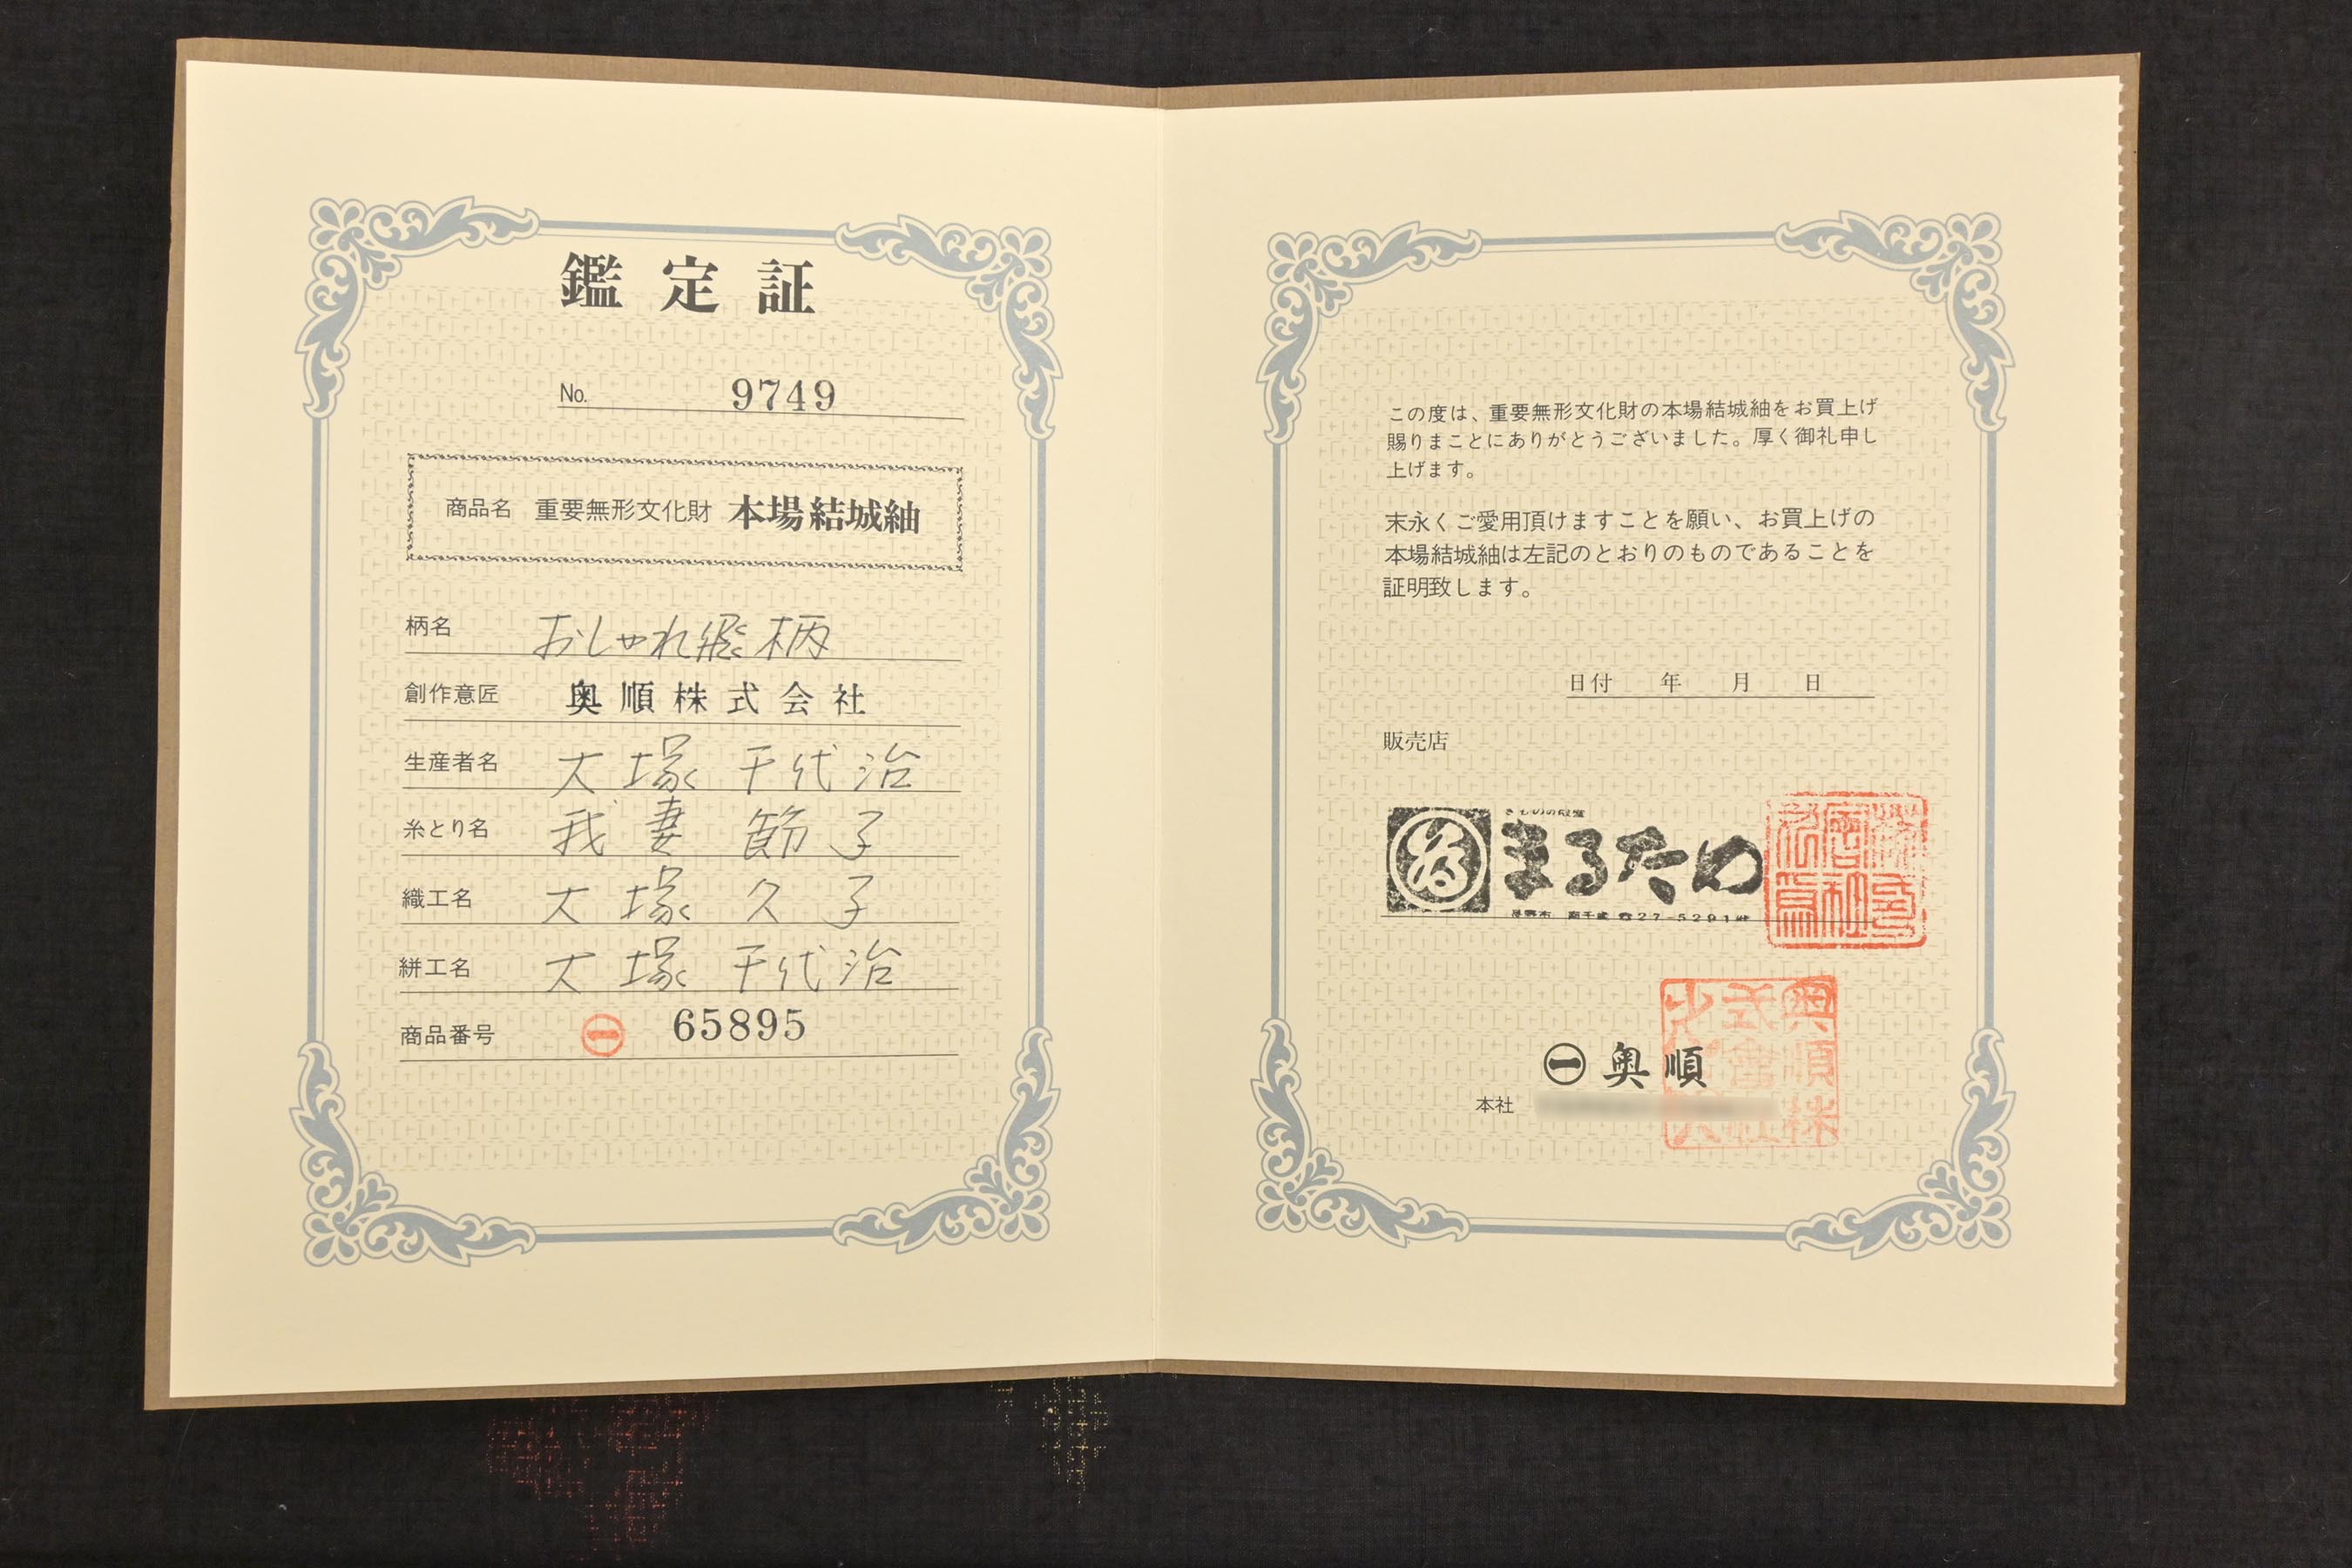 鑑定証
No. 9749
商品名 重要無形文化財 本場結城紬
柄名 おしゃれ総柄
創作意匠 奥順株式会社
生産者名 大塚千代治
糸とり名 我妻節子
織工名 大塚久子
絣工名 大塚千代治
商品番号 ㊀ 65895
この度は、重要無形文化財の本場結城紬をお買上げ
賜りまことにありがとうございました。厚く御礼申し
上げます。
末永くご愛用頂けますことを願い、お買上げの
本場結城紬は左記のとおりのものであることを
証明致します。
日付 年 月 日
販売店
きものの殿堂
まるため
☎27-5291
㊀ 奥順
奥順株式会社
本社